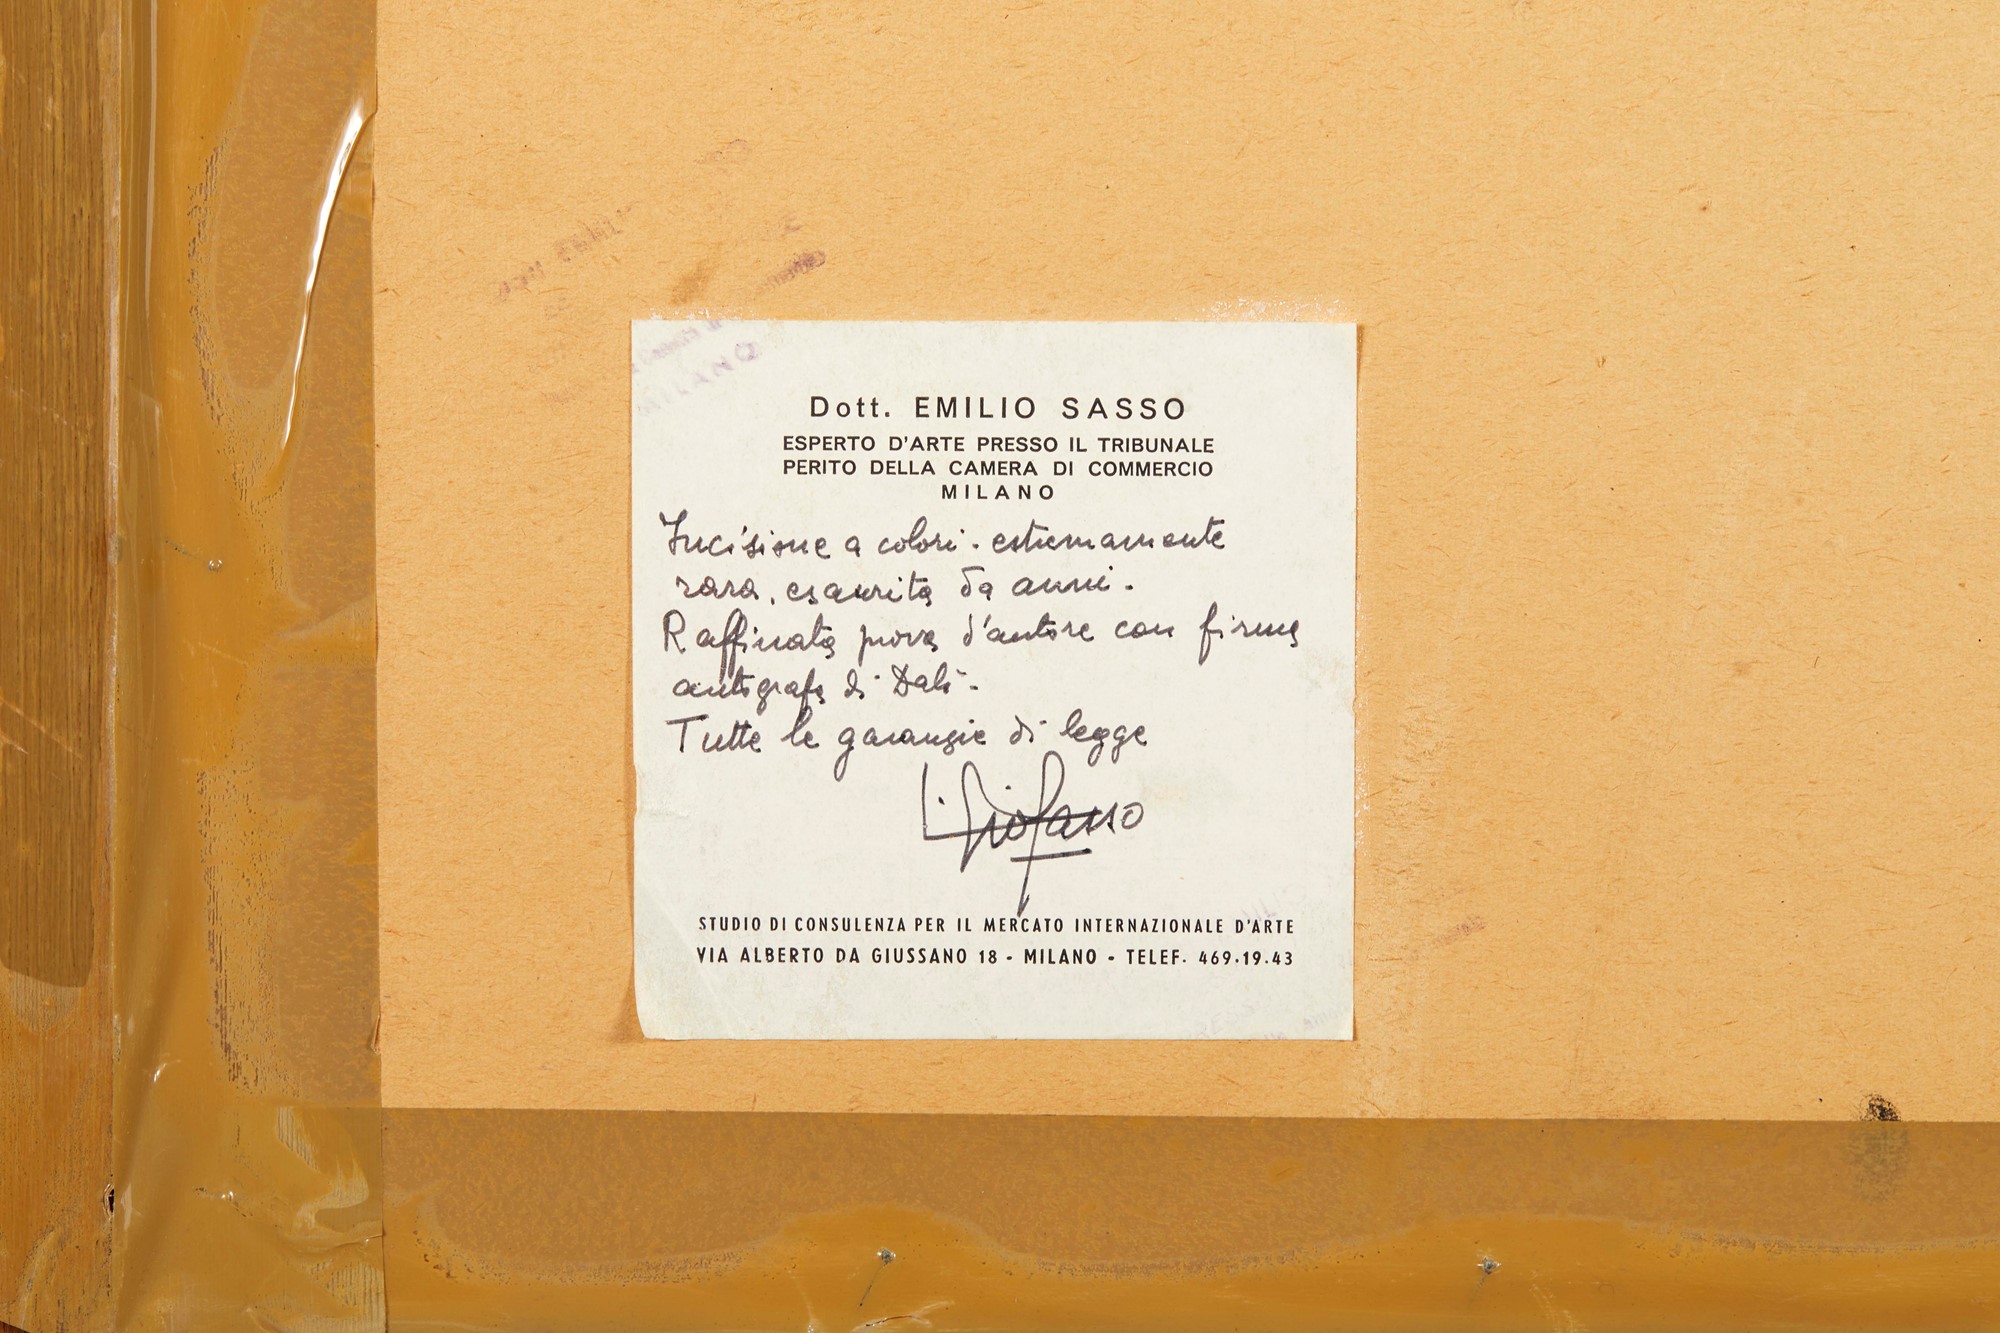 Dott. EMILIO SASSO
ESPERTO D'ARTE PRESSO IL TRIBUNALE
PERITO DELLA CAMERA DI COMMERCIO
MILANO
Incisione a colori. estremamente
rara, esaurita da anni.
Raffinata prova d'autore con firma
autografa di Dalì.
Tutte le garanzie di legge
STUDIO DI CONSULENZA PER IL MERCATO INTERNAZIONALE D'ARTE
VIA ALBERTO DA GIUSSANO 18 - MILANO - TELEF. 469.19.43